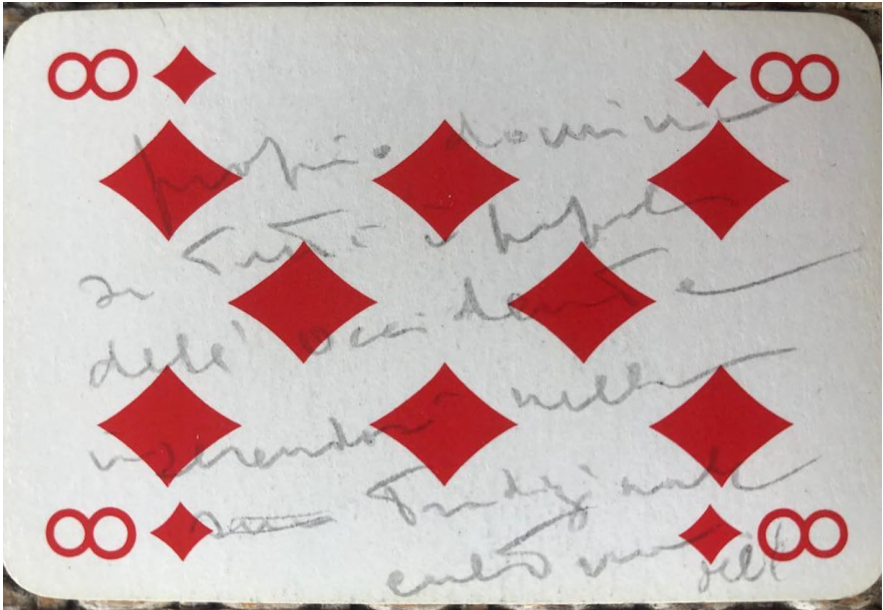 8 8
proprio dominio
su tutti i popoli
dell'occidente e
inserendosi nella
tradizionale
cultura
8 8